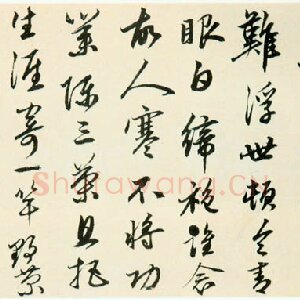 難浮世頓令青
眼白綈袍誰念
故人寒不將功
業陳三策且把
生涯寄一竿野
Shufawang.Cn